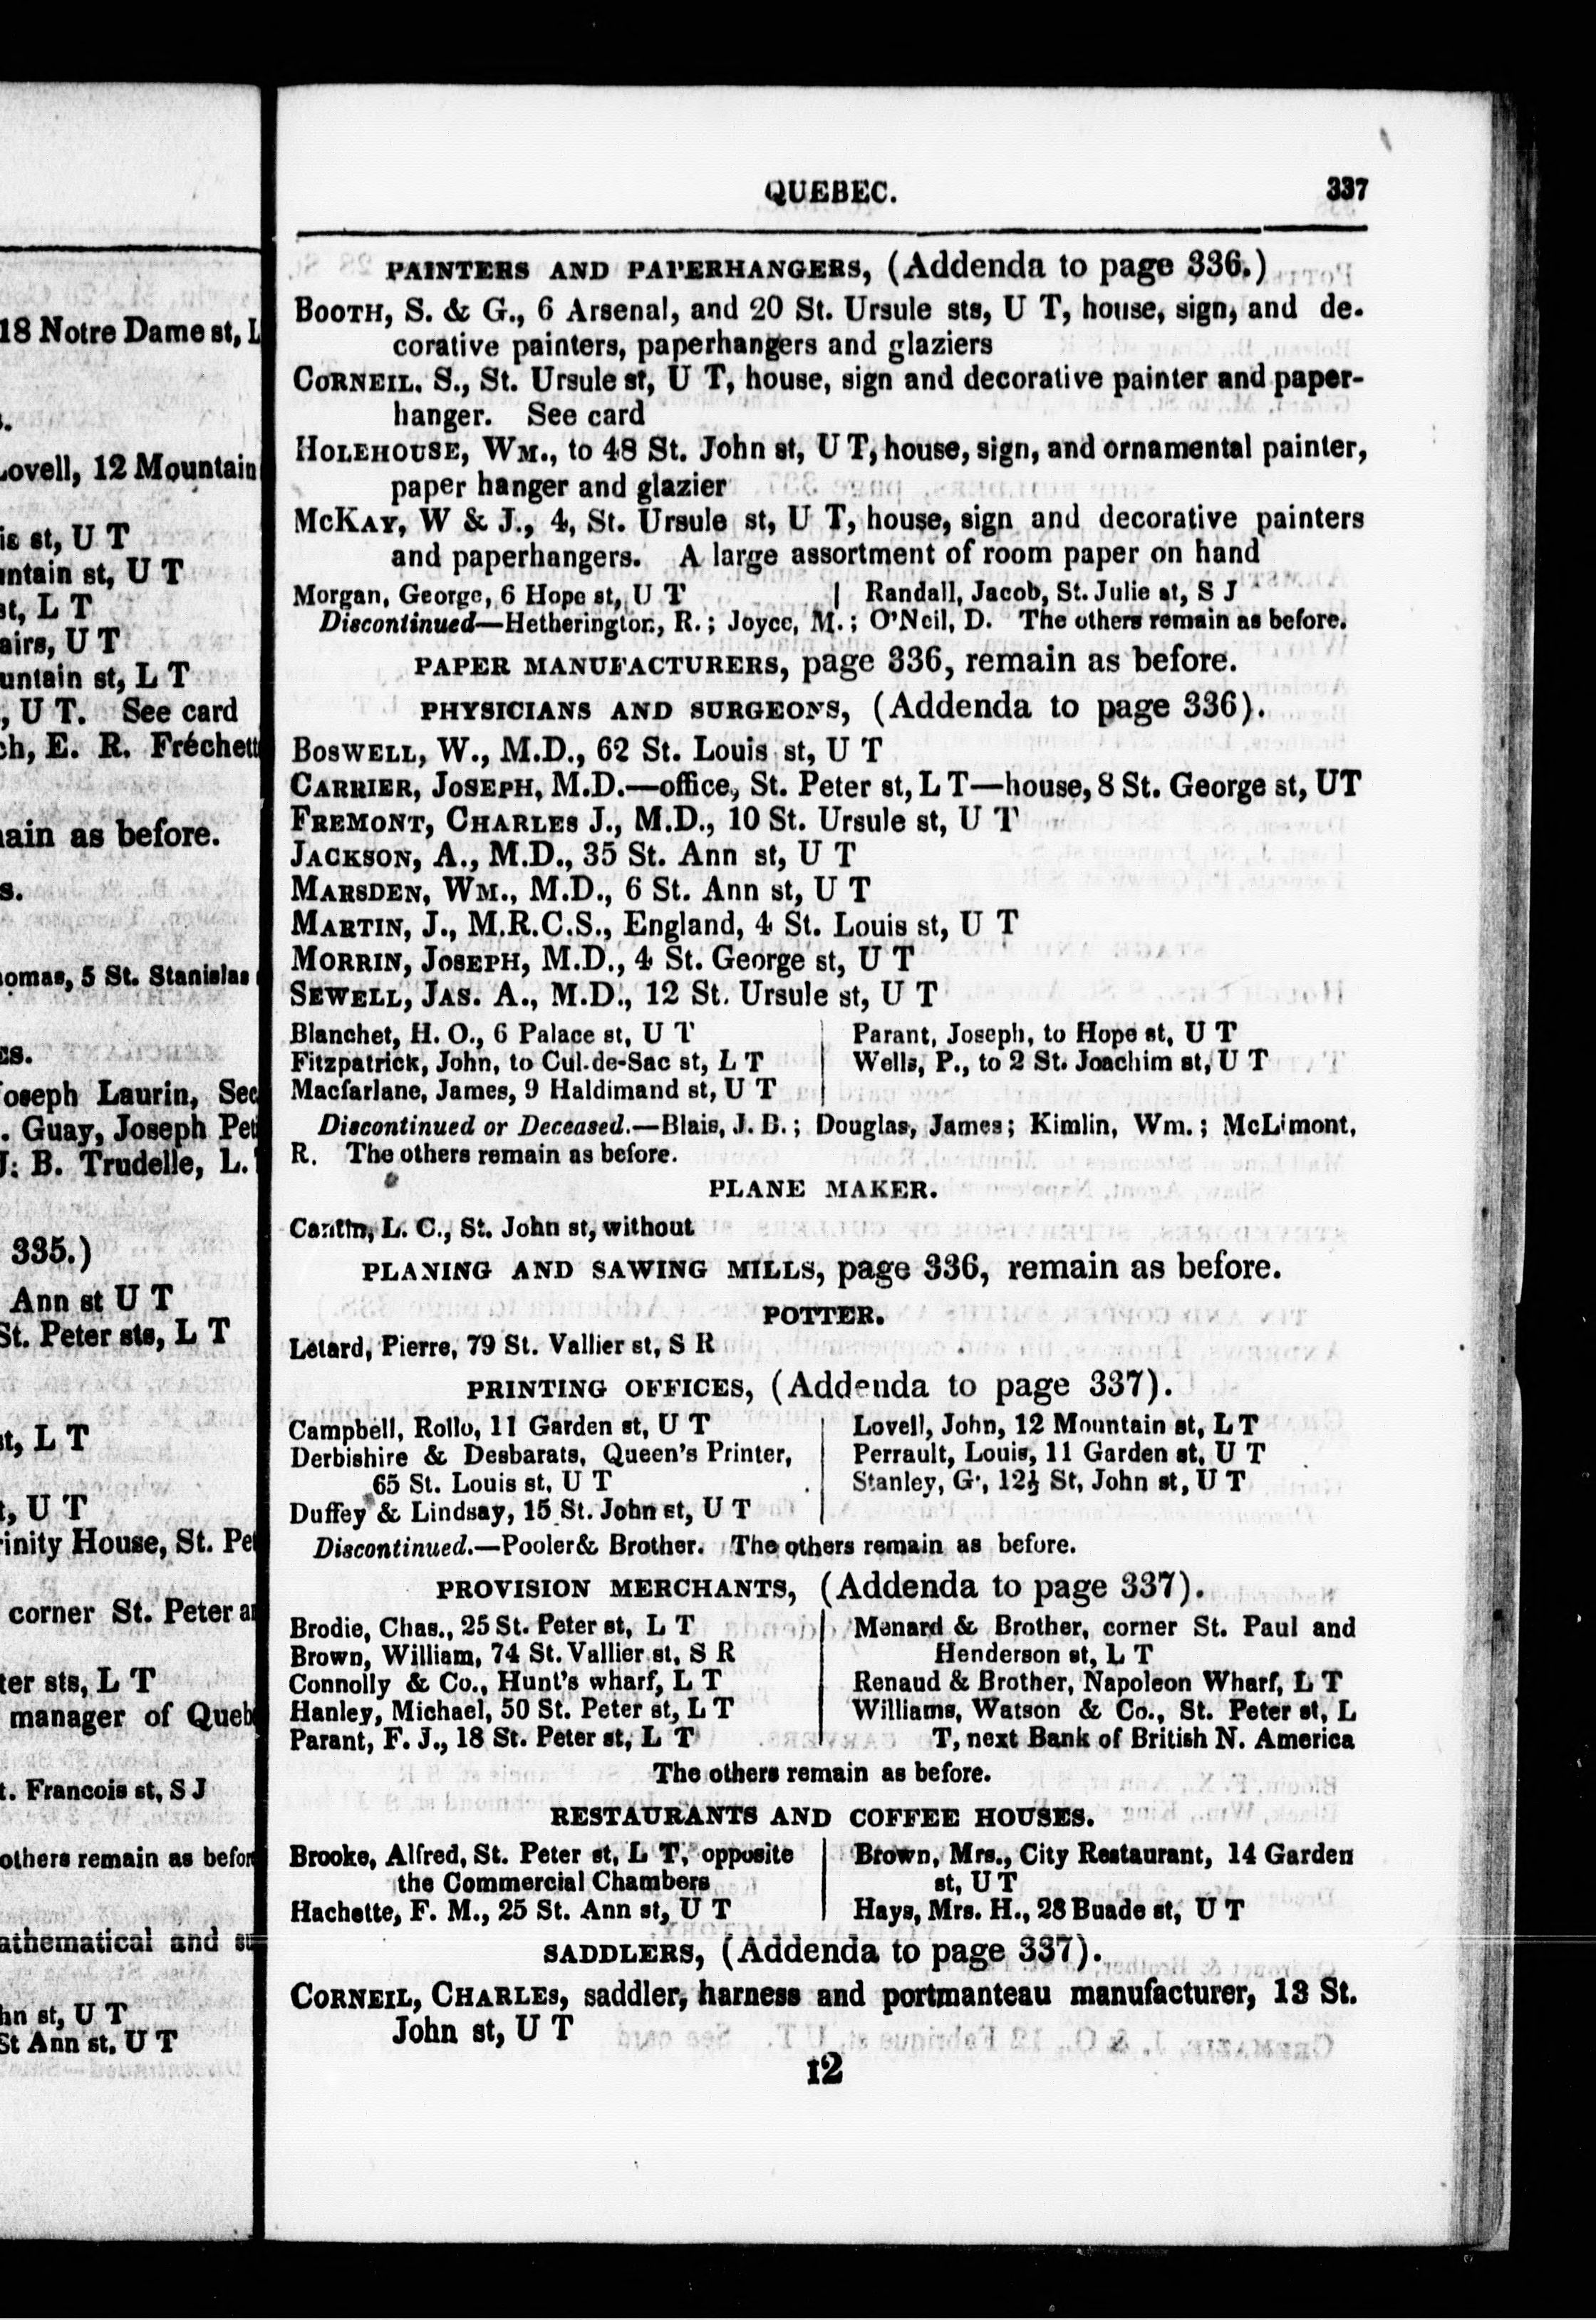 18 Notre Dame st, L
Lovell, 12 Mountain
st, U T
st, U T
st, L T
U T
st, L T
, U T. See card
E. R. Fréchett
as before.
5 St. Stanislas
Joseph Laurin, Sec
. Guay, Joseph Pet
B. Trudelle, L.
335.)
Ann st U T
St. Peter sts, L T
L T
, U T
House, St. Pet
corner St. Peter
sts, L T
manager of Queb
Francois st, S J
others remain as before
and
st, U T
St Ann st, U T
QUEBEC. 337
PAINTERS AND PAPERHANGERS, (Addenda to page 336.)
BOOTH, S. & G., 6 Arsenal, and 20 St. Ursule sts, U T, house, sign, and de-
corative painters, paperhangers and glaziers
CORNEIL. S., St. Ursule st, U T, house, sign and decorative painter and paper-
hanger. See card
HOLEHOUSE, WM., to 48 St. John st, U T, house, sign, and ornamental painter,
paper hanger and glazier
MCKAY, W & J., 4, St. Ursule st, U T, house, sign and decorative painters
and paperhangers. A large assortment of room paper on hand
Morgan, George, 6 Hope st, U T | Randall, Jacob, St. Julie st, S J
Discontinued—Hetherington, R.; Joyce, M.; O'Neil, D. The others remain as before.
PAPER MANUFACTURERS, page 336, remain as before.
PHYSICIANS AND SURGEONS, (Addenda to page 336).
BOSWELL, W., M.D., 62 St. Louis st, U T
CARRIER, JOSEPH, M.D.—office, St. Peter st, L T—house, 8 St. George st, UT
FREMONT, CHARLES J., M.D., 10 St. Ursule st, U T
JACKSON, A., M.D., 35 St. Ann st, U T
MARSDEN, WM., M.D., 6 St. Ann st, U T
MARTIN, J., M.R.C.S., England, 4 St. Louis st, U T
MORRIN, JOSEPH, M.D., 4 St. George st, U T
SEWELL, JAS. A., M.D., 12 St. Ursule st, U T
Blanchet, H. O., 6 Palace st, U T
Fitzpatrick, John, to Cul-de-Sac st, L T
Macfarlane, James, 9 Haldimand st, U T
Parant, Joseph, to Hope st, U T
Wells, P., to 2 St. Joachim st, U T
Discontinued or Deceased.—Blais, J. B.; Douglas, James; Kimlin, Wm.; McLimont,
R. The others remain as before.
PLANE MAKER.
Cantin, L. C., St. John st, without
PLANING AND SAWING MILLS, page 336, remain as before.
POTTER.
Letard, Pierre, 79 St. Vallier st, S R
PRINTING OFFICES, (Addenda to page 337).
Campbell, Rollo, 11 Garden st, U T
Derbishire & Desbarats, Queen's Printer,
65 St. Louis st, U T
Duffey & Lindsay, 15 St. John st, U T
Lovell, John, 12 Mountain st, L T
Perrault, Louis, 11 Garden st, U T
Stanley, G., 12½ St, John st, U T
Discontinued.—Pooler & Brother. The others remain as before.
PROVISION MERCHANTS, (Addenda to page 337).
Brodie, Chas., 25 St. Peter st, L T
Brown, William, 74 St. Vallier st, S R
Connolly & Co., Hunt's wharf, L T
Hanley, Michael, 50 St. Peter st, L T
Parant, F. J., 18 St. Peter st, L T
Menard & Brother, corner St. Paul and
Henderson st, L T
Renaud & Brother, Napoleon Wharf, L T
Williams, Watson & Co., St. Peter st, L
T, next Bank of British N. America
The others remain as before.
RESTAURANTS AND COFFEE HOUSES.
Brooke, Alfred, St. Peter st, L T, opposite
the Commercial Chambers
Hachette, F. M., 25 St. Ann st, U T
Brown, Mrs., City Restaurant, 14 Garden
st, U T
Hays, Mrs. H., 28 Buade st, U T
SADDLERS, (Addenda to page 337).
CORNEIL, CHARLES, saddler, harness and portmanteau manufacturer, 13 St.
John st, U T
12